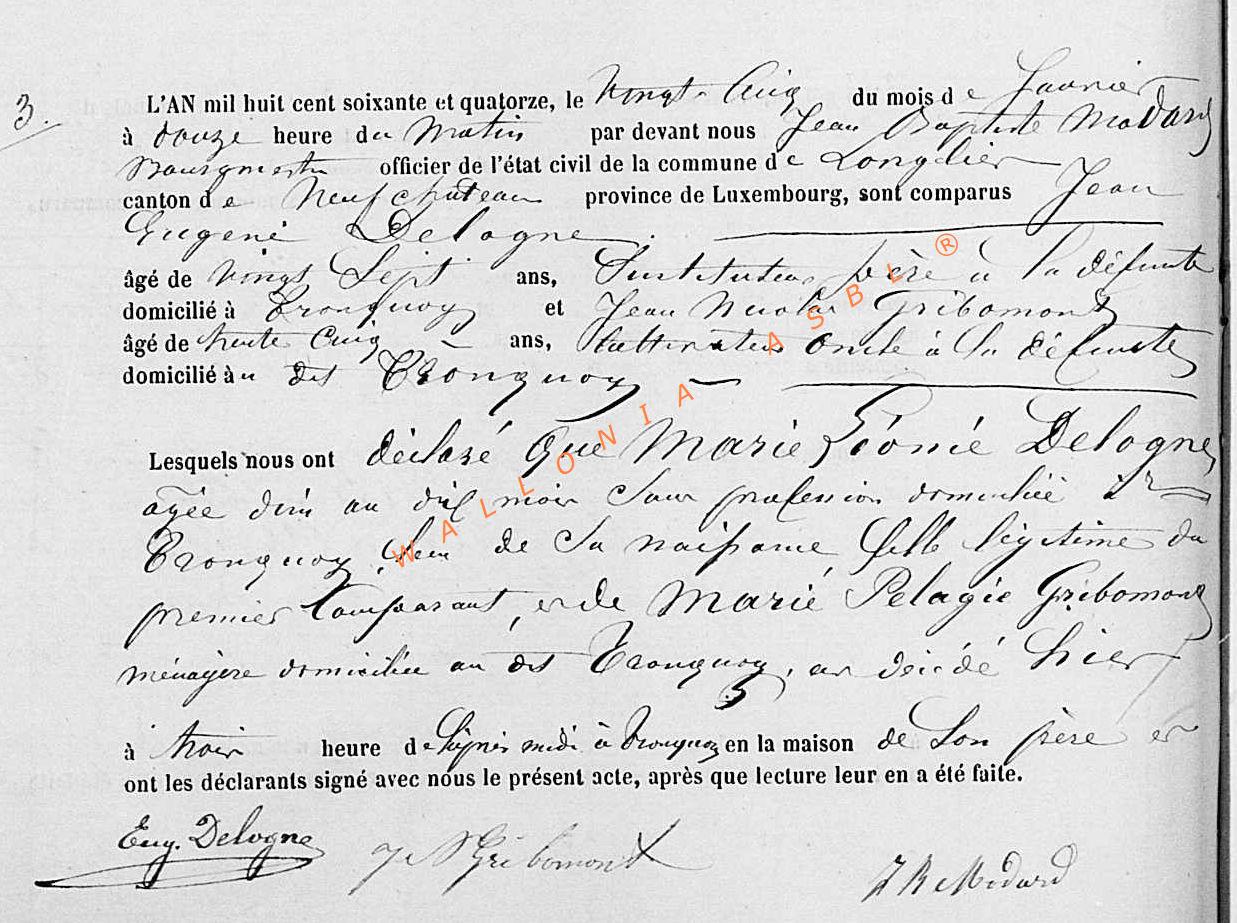 3.
L'AN mil huit cent soixante et quatorze, le vingt Cinq du mois de Janvier
à douze heure du Matin par devant nous Jean Baptiste Modard
Bourgmestre officier de l'état civil de la commune de Longlier
canton de Neufchateau province de Luxembourg, sont comparus Jean
Eugene Delogne
âgé de vingt Sept ans, Instituteur père à la défunte
domicilié à Tronquoy et Jean Nicolas Gribomont
âgé de trente Cinq ans, Cultivateur Oncle à la défunte
domicilié à u dit Tronquoy
Lesquels nous ont déclaré que Marie Léonie Delogne
agée d'un an dix mois Sans profession domiciliée à
Tronquoy lieu de Sa naissance fille légitime du
premier Comparant, et de Marie Pelagie Gribomont
ménagère domiciliée au dit Tronquoy, est décédé hier
à trois heure de l'après midi à Tronquoy en la maison de Son père et
ont les déclarants signé avec nous le présent acte, après que lecture leur en a été faite.
Eug. Delogne
J N Gribomont
J B Modard
WALLONIA ASBL ®